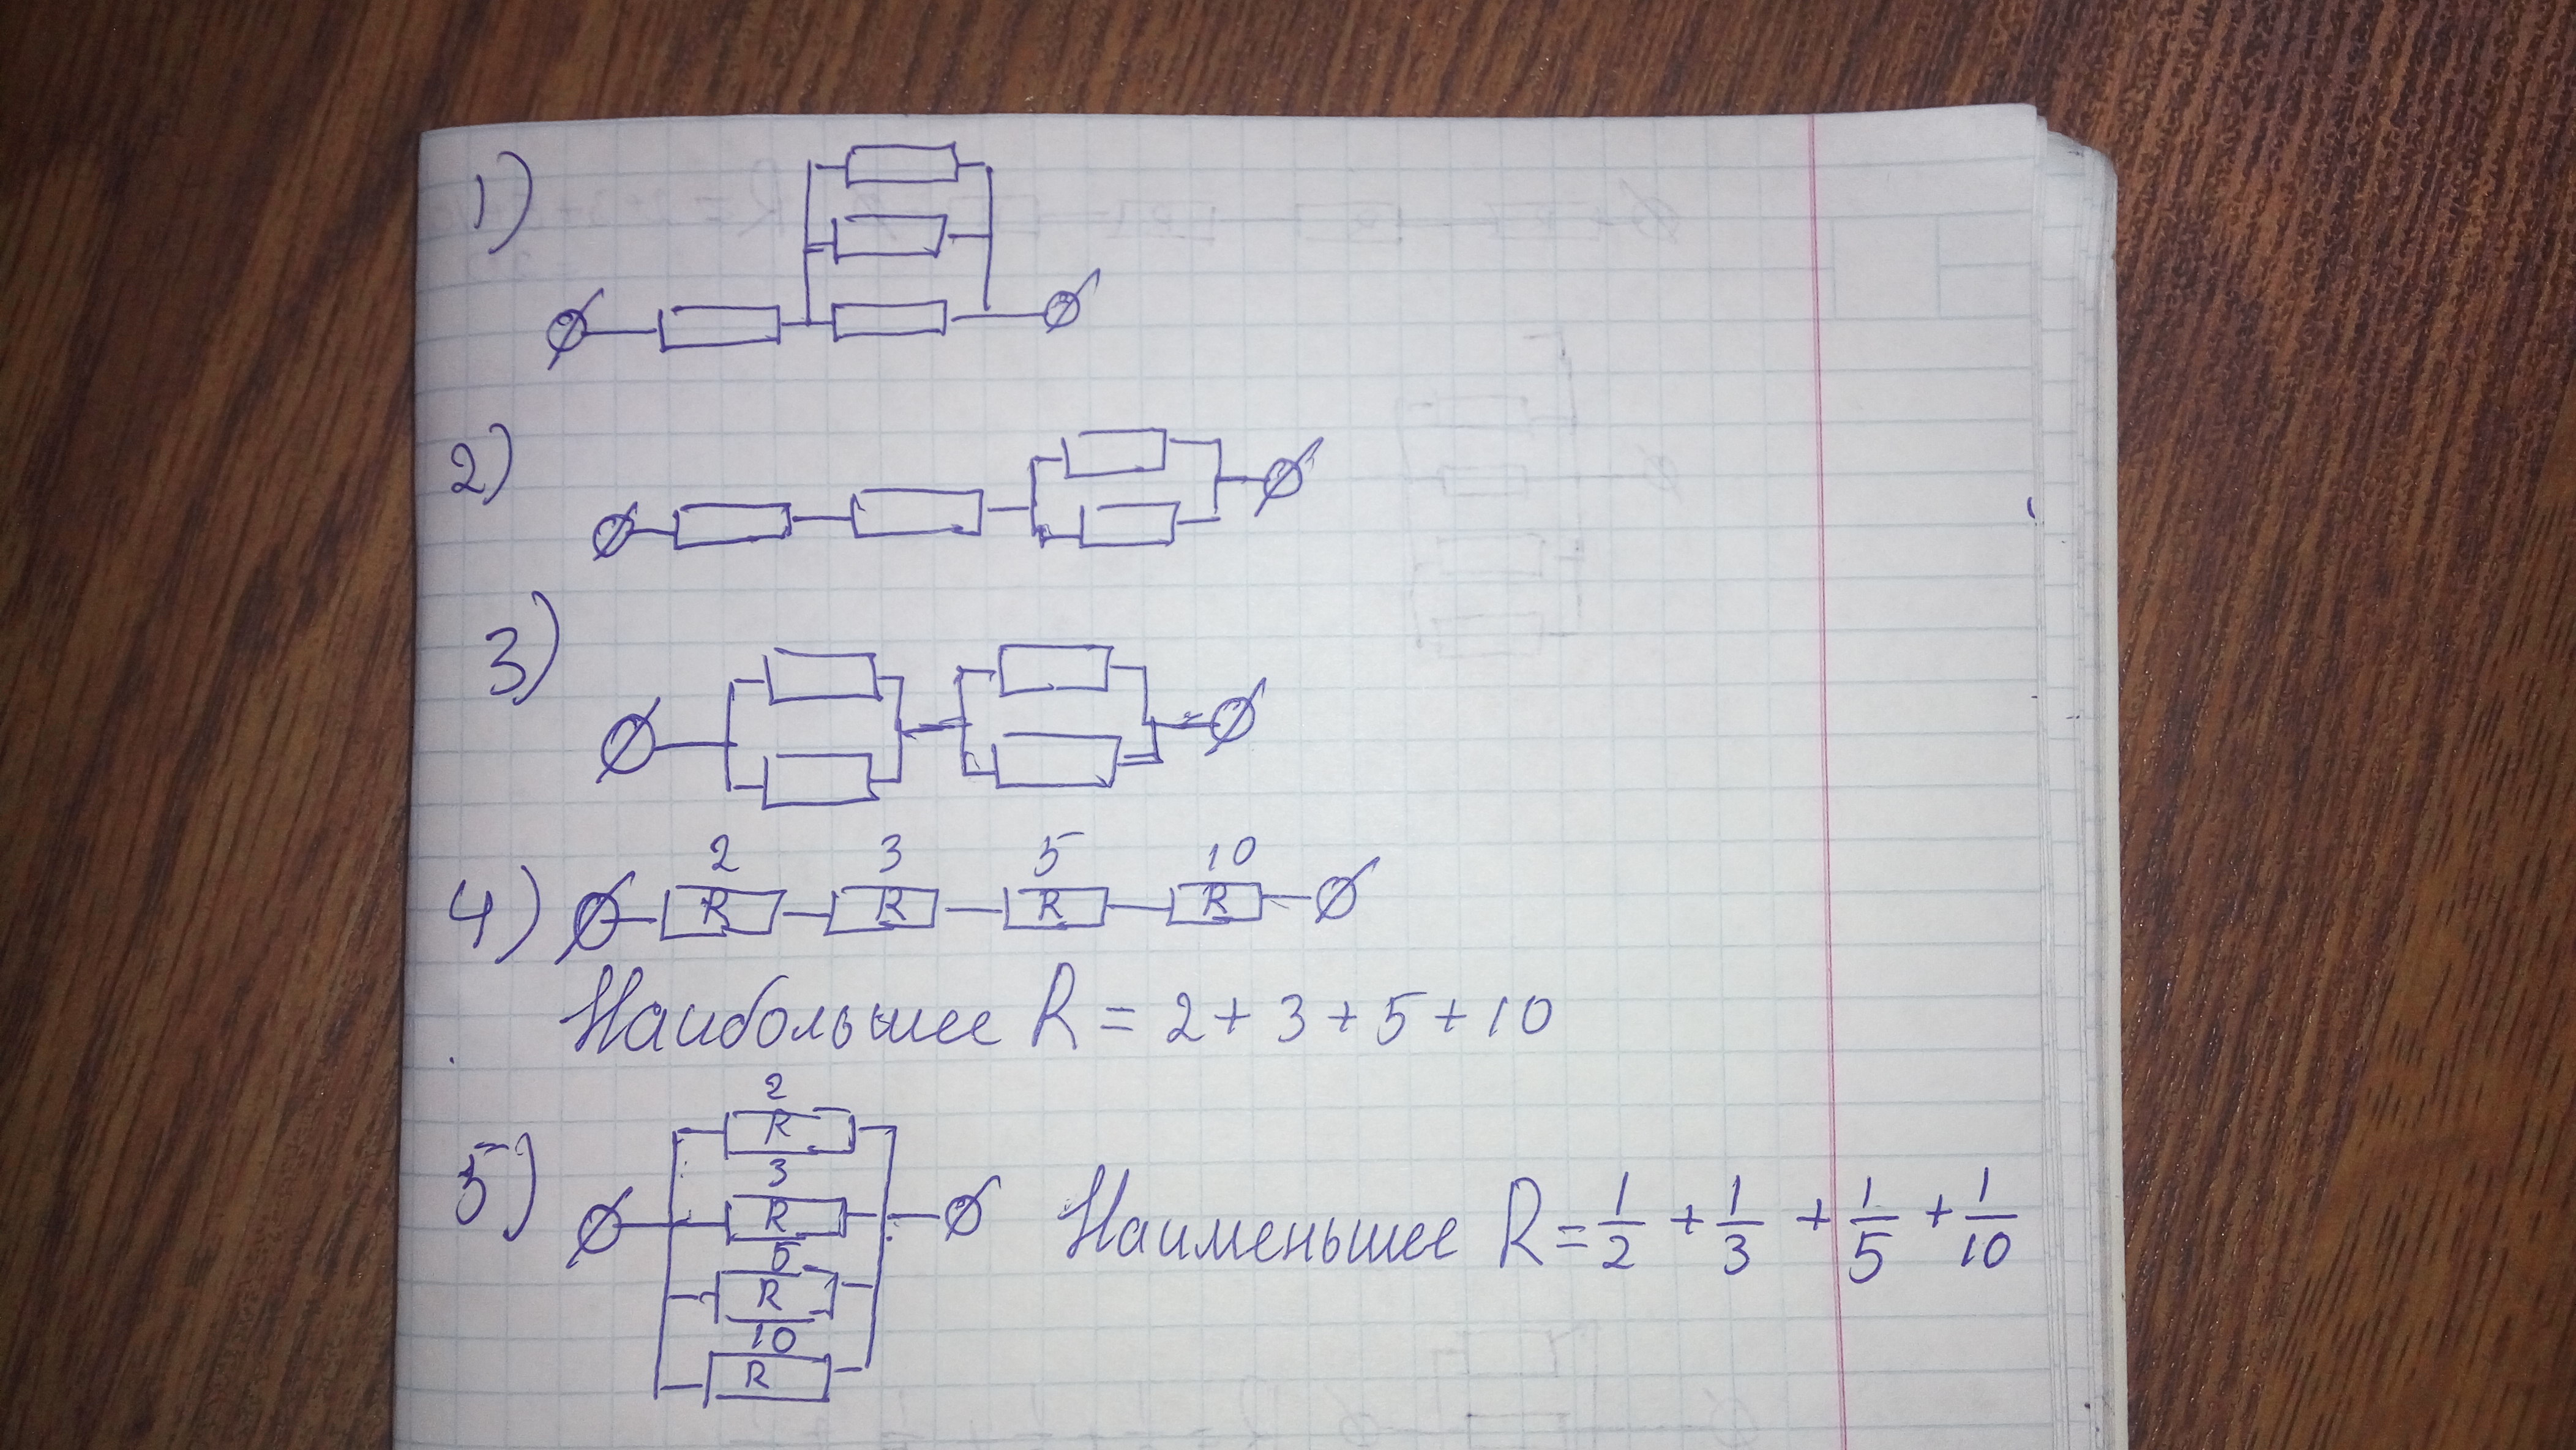 1)
2)
3)
2 3 5 10
4) R R R R
Наибольшее R = 2 + 3 + 5 + 10
2
R
3
5) R Наименьшее R = 1/2 + 1/3 + 1/5 + 1/10
5
R
10
R